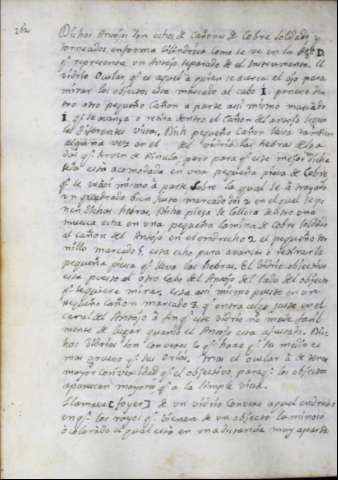 Dichos Anteojos son echos de Cañones de Cobre soldado y
torneados en forma Cilindrica Como se ve en la fig.ª D
q.e representa un Anteojo separado de el Instrumento. El
vidrio Ocular q.e es aquel a quien se acerca el ojo para
mirar los objectos esta marcado al cabo 1. ponese den
tro otro pequeño Cañon a parte asi mismo marcado
1. q.e se avanza o retira dentro el Cañon del anteojo segun
las diferentes vistas, Dicho pequeño Cañon lleva tambien
alguna vez en el del vidrio las hebras de seda
q.e sirven de Pinula, pero para q.e este mejor dicha
seda esta acomodada en una pequeña pieza de Cobre
q.e se ve asi mismo a parte sobre la qual se à trazado
un quadrado bien justo marcado 2 en el qual se po
nen dichas hebras, Dicha pieza se colloca dentro una
muesca esta en una pequeña lamina de Cobre soldado
al cañon del Anteojo en el ondrecho 2 el pequeño tor
nillo marcado 5, esta echo para avanzar o retirar la
pequeña pieza q.e lleva las Hebras. El vidrio objectivo
esta puesto al otro cabo del Anteojo del lado del objecto
q.e se quiere mirar, esta asi mismo puesto en un
pequeño cañon marcado 3 q.e entra justo en el
canal del Anteojo à fin q.e este vidrio no mude facil
mente de lugar quando el Anteojo esta ajustado. Di
chos Vidrios son Convexos lo q.e haze q.e su medio es
mas grueso q.e sus orlas, mas el ocular à de tener
mayor convexidad q.e el objectivo, para q.e los objectos
aparescan mayores q.e a la simple vista.
Llamase [foyer] de un vidrio Convexo aquel endrecho
en q.e los rayos q.e vienen de un objecto luminoso
ò colorado el qual este en una distancia muy aparte